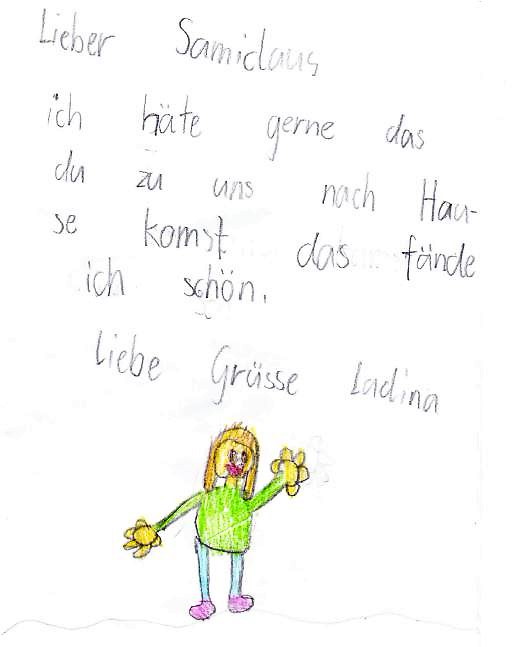 Lieber Samiclaus
ich häte gerne das
du zu uns nach Hau-
se komst das fände
ich schön.
Liebe Grüsse Ladina